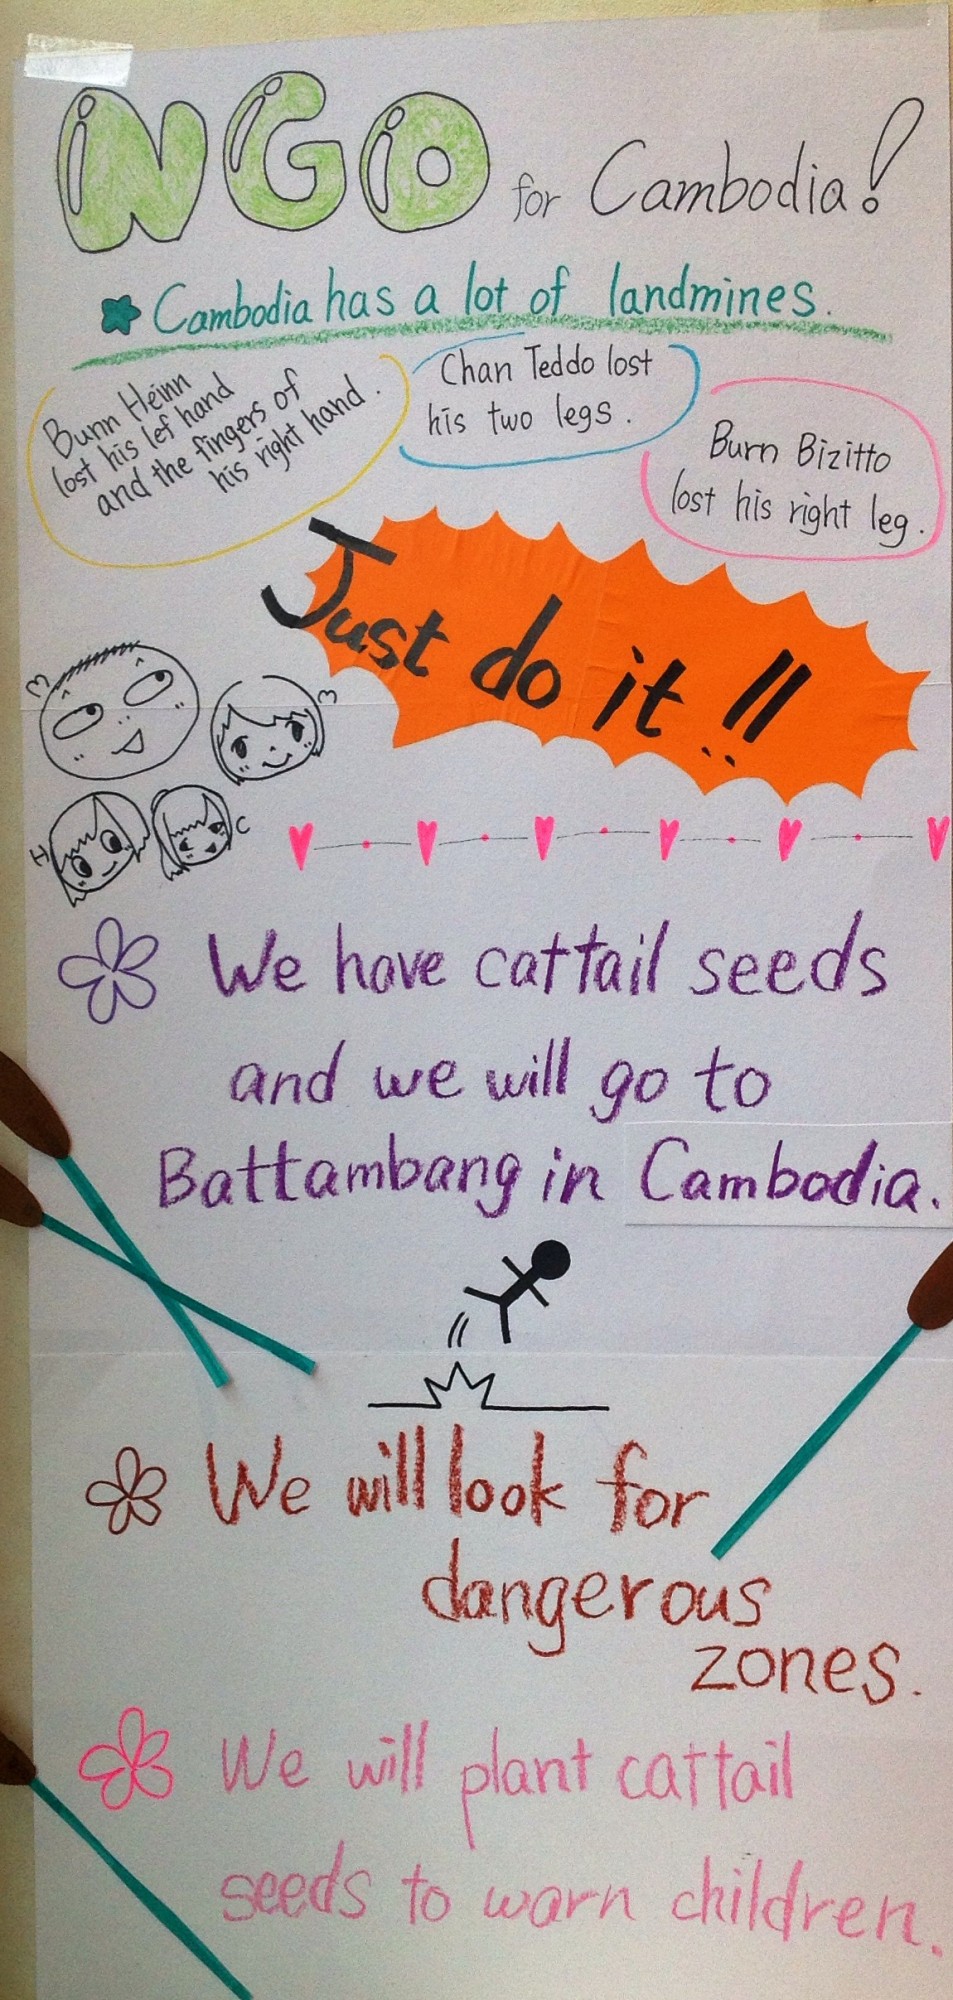 NGO for Cambodia!
Cambodia has a lot of landmines.
Bunn Heinn
lost his lef hand
and the fingers of
his right hand.
Chan Teddo lost
his two legs.
Burn Bizitto
lost his right leg.
Just do it!!
H
C
We have cattail seeds
and we will go to
Battambang in Cambodia.
We will look for
dangerous
zones.
We will plant cattail
seeds to warn children.